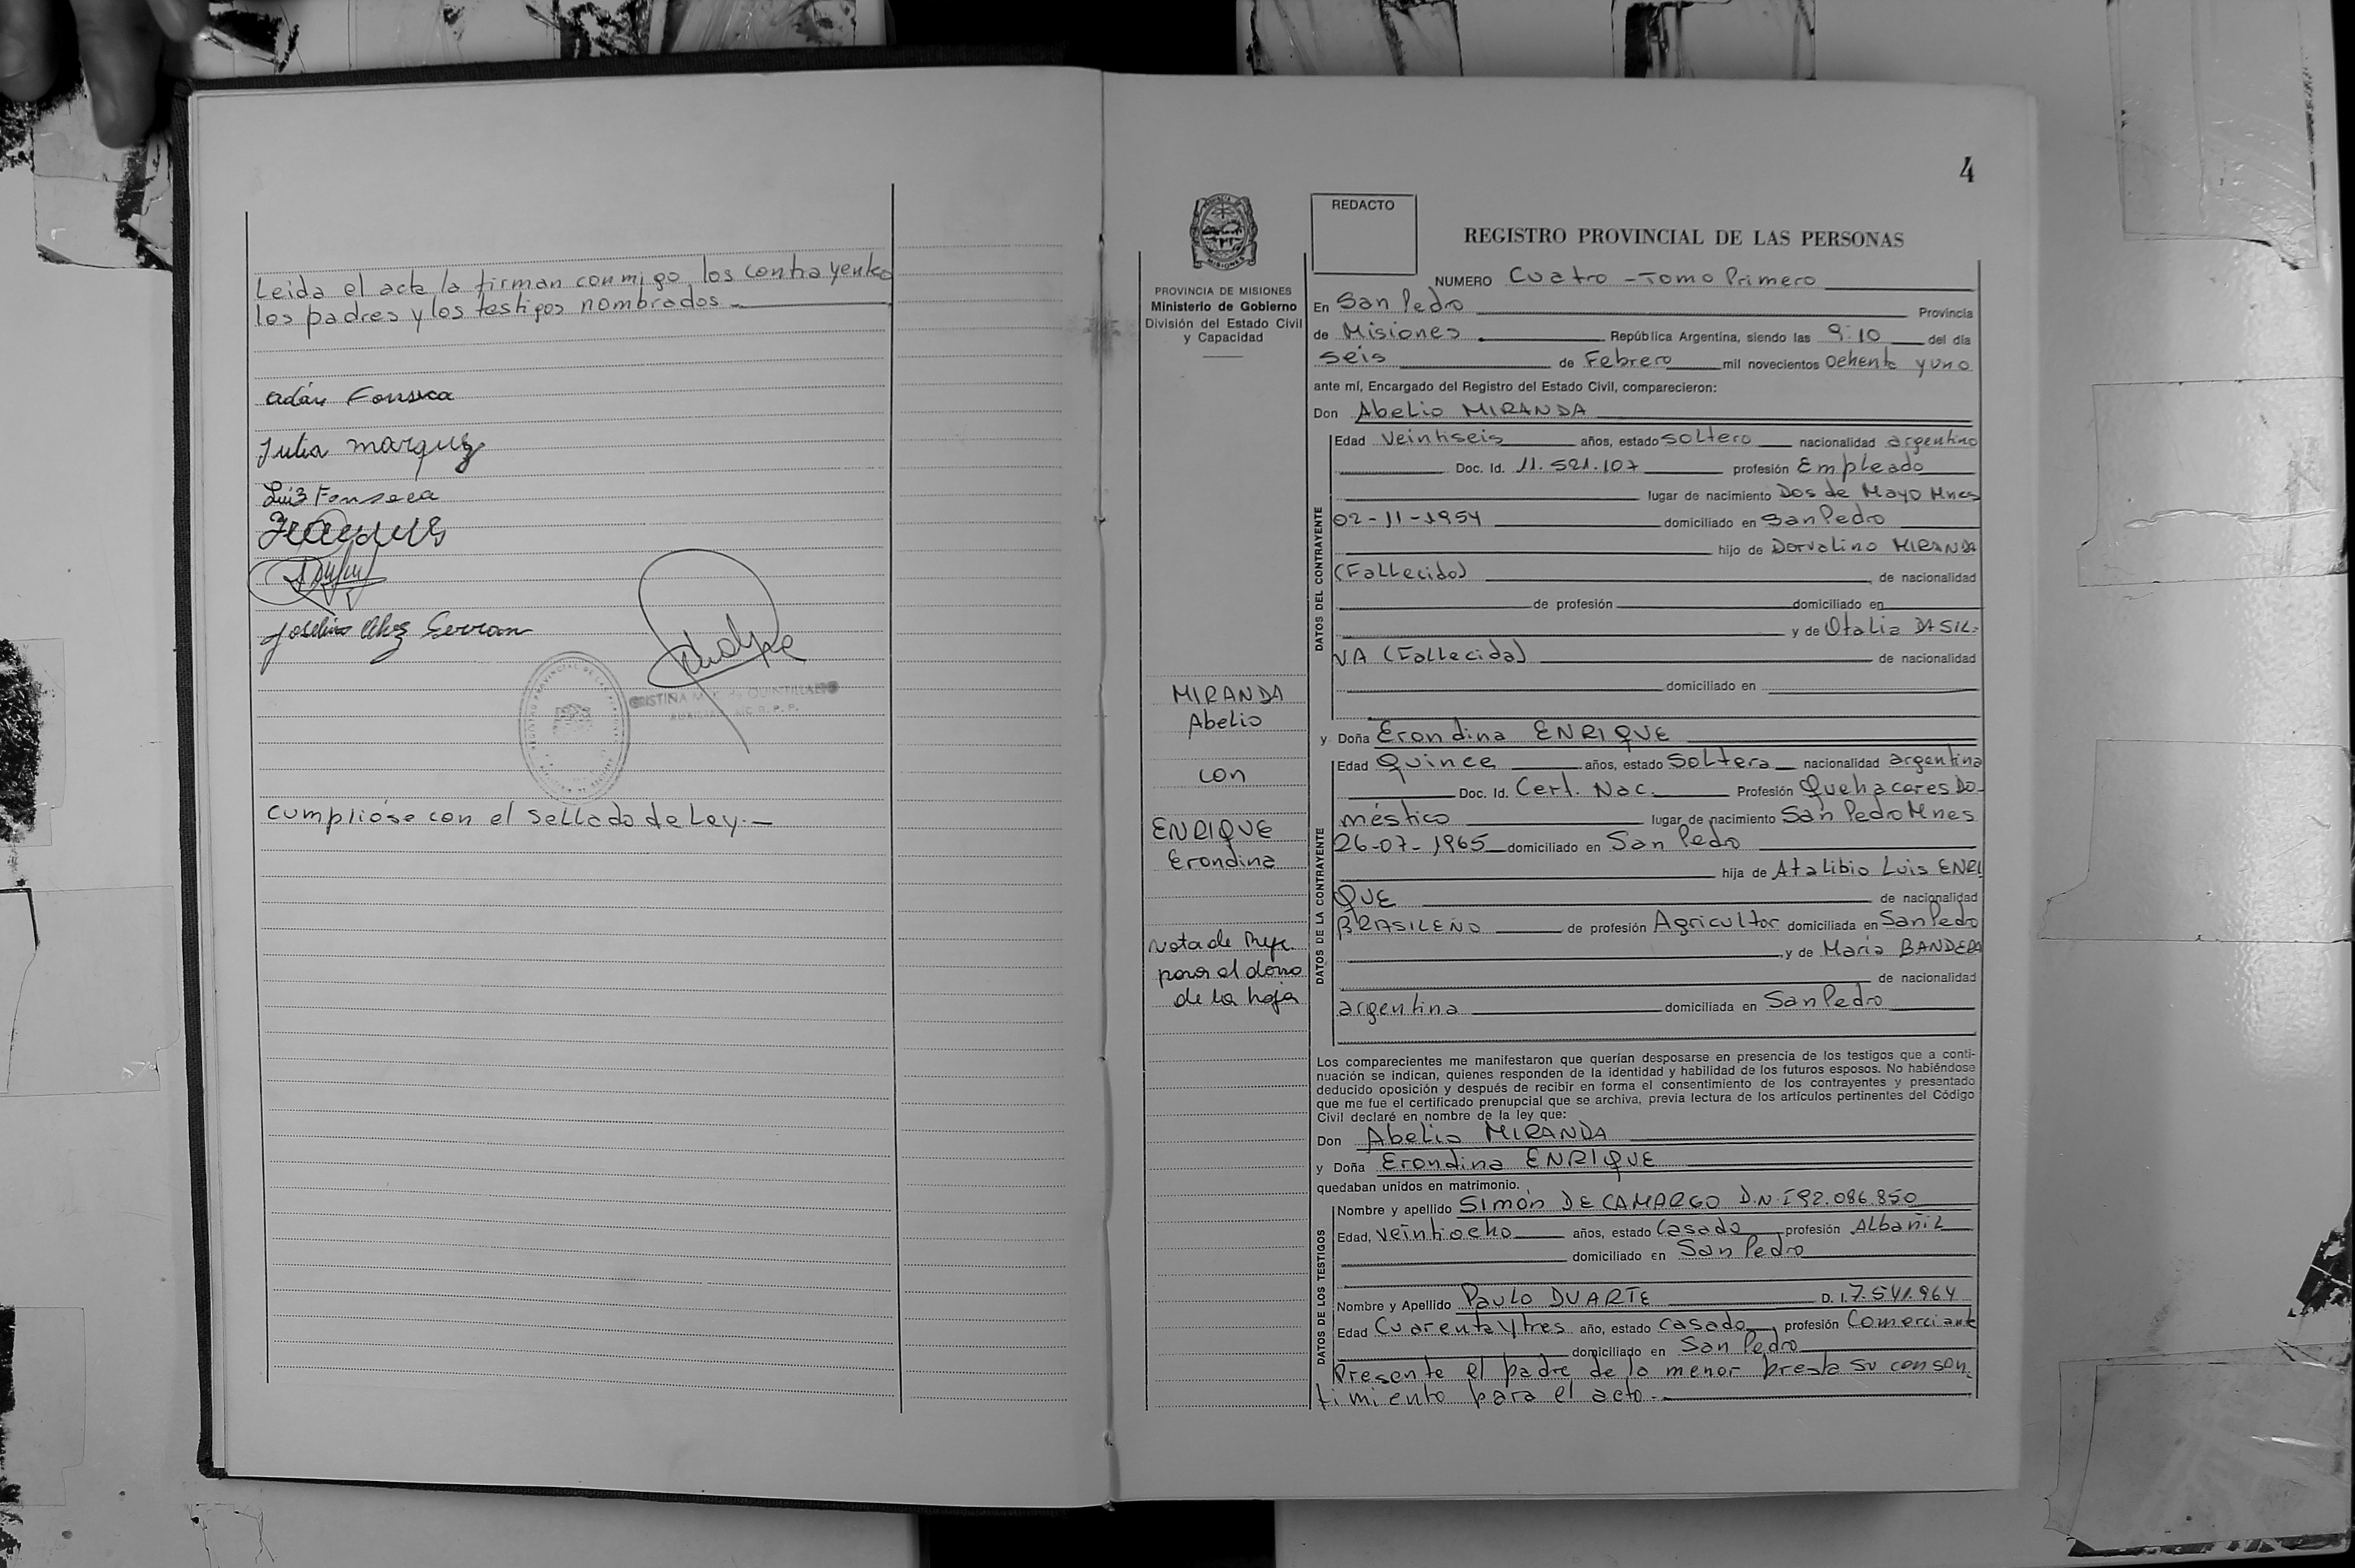 Leida el acta la firman conmigo los contrayentes
los padres y los testigos nombrados.-
Adán Fonseca
Julia marquez
Luiz Fonseca
Cumplióse con el sellado de Ley.-
4
REDACTO
REGISTRO PROVINCIAL DE LAS PERSONAS
PROVINCIA DE MISIONES
Ministerio de Gobierno
División del Estado Civil
y Capacidad
NUMERO Cuatro - Tomo Primero
En San Pedro Provincia
de Misiones República Argentina, siendo las 9:10 del día
seis de Febrero mil novecientos ochenta y uno
ante mí, Encargado del Registro del Estado Civil, comparecieron:
Don Abelio MIRANDA
DATOS DEL CONTRAYENTE
Edad Veintiseis años, estado soltero nacionalidad argentino
Doc. Id. 11.521.107 profesión Empleado
lugar de nacimiento Dos de Mayo Mnes
02-11-1954 domiciliado en San Pedro
hijo de Dorvalino MIRANDA
(Fallecido) de nacionalidad
de profesión domiciliado en
y de Otalia DA SIL-
VA (Fallecida) de nacionalidad
domiciliado en
MIRANDA
Abelio
con
ENRIQUE
Erondina
Nota de Ref.
para el dorso
de la hoja
y Doña Erondina ENRIQUE
DATOS DE LA CONTRAYENTE
Edad Quince años, estado soltera nacionalidad argentina
Doc. Id. Cert. Nac. Profesión Quehaceres DO-
méstico lugar de nacimiento San Pedro Mnes
26-07-1965 domiciliado en San Pedro
hija de Atalibio Luis ENRI
QUE de nacionalidad
BRASILEÑO de profesión Agricultor domiciliada en San Pedro
y de María BANDERA
de nacionalidad
argentina domiciliada en San Pedro
Los comparecientes me manifestaron que querían desposarse en presencia de los testigos que a conti-
nuación se indican, quienes responden de la identidad y habilidad de los futuros esposos. No habiéndose
deducido oposición y después de recibir en forma el consentimiento de los contrayentes y presentado
que me fue el certificado prenupcial que se archiva, previa lectura de los artículos pertinentes del Código
Civil declaré en nombre de la ley que:
Don Abelio MIRANDA
y Doña Erondina ENRIQUE
quedaban unidos en matrimonio.
DATOS DE LOS TESTIGOS
Nombre y apellido Simón DE CAMARGO D.N.I 92.086.850
Edad, veintiocho años, estado casado profesión Albañil
domiciliado en San Pedro
Nombre y Apellido Paulo DUARTE D. I. 7.541.964
Edad Cuarenta y tres año, estado casado, profesión Comerciante
domiciliado en San Pedro
Presente el padre de la menor presta su consen-
timiento para el acto.-